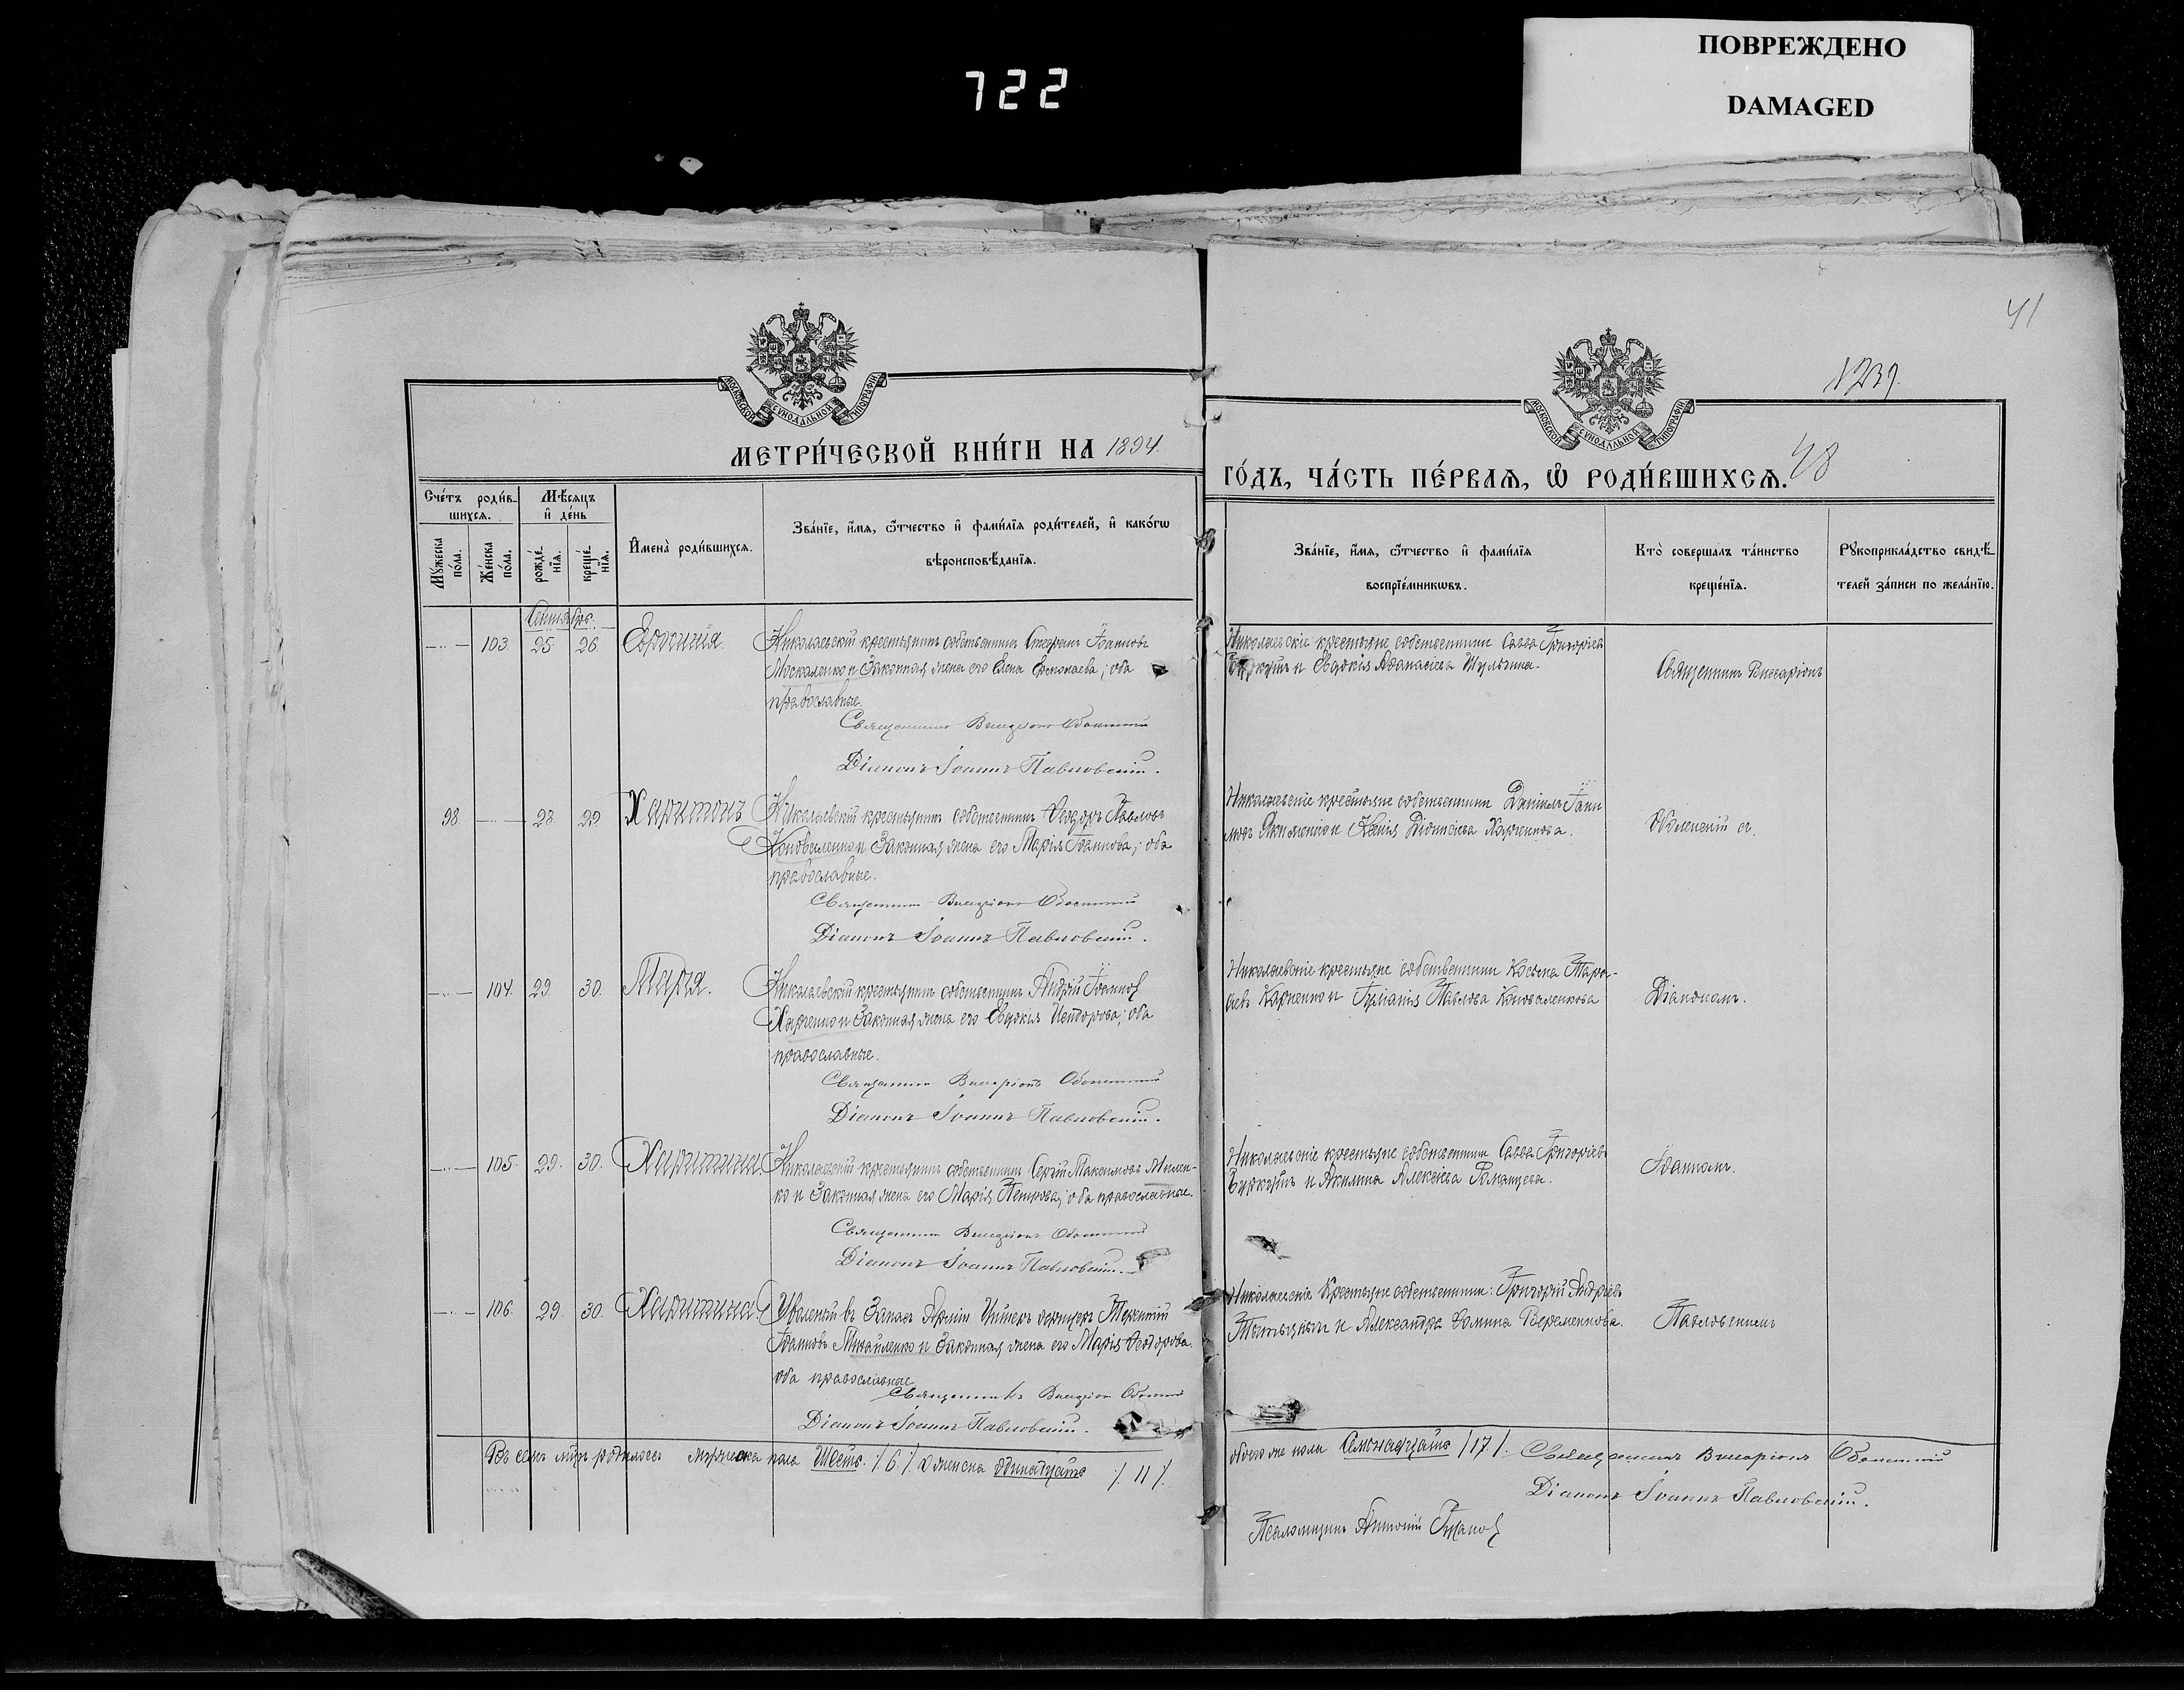 ПОВРЕЖДЕНО
DAMAGED
722
41
1239.
48
МОСКОВСКОЙ СУНОДАЛЬНОЙ ТИПОГРАФІИ
МОСКОВСКОЙ СУНОДАЛЬНОЙ ТИПОГРАФІИ
МЕТРИ́ЧЕСКОЙ КНИ́ГИ НА 1894.
ГО́ДЪ, ЧА́СТЬ ПЕ́РВАѦ, Ѡ҆ РОДИ́ВШИХСѦ.
Сче́тъ роди́в-
шихсѧ.
Мѣ́сѧцъ
и҆ де́нь
Мꙋ́жеска
по́ла.
Же́нска
по́ла.
рожде́-
нїѧ.
креще́-
нїѧ.
И҆мена̀ роди́вшихсѧ.
Зва́нїе, и҆́мѧ, ѻ҆́тчество и҆ фами́лїѧ роди́телей, и҆ како́гѡ
вѣроисповѣ́данїѧ.
Зва́нїе, и҆́мѧ, ѻ҆́тчество и҆ фами́лїѧ
воспрїе́мникѡвъ.
Кто̀ соверша́лъ та́инство
креще́нїѧ.
Рꙋкоприкла́дство свидѣ́-
телей за́писи по жела́нїю.
Сентябрь.
103. 25. 26. Николаевскій крестьянинъ собственникъ Стефанъ Іоанновъ
Москаленко и Законная жена его Елена ; оба
православные.
Священникъ Виссаріонъ
Діаконъ Іоаннъ Павловскій.
Николаевскіе крестьяне собственники Савва Григоріевъ
и Евдокія Аѳанасіева Шульгина.
Священникъ Виссаріонъ
98. 28. 29. Харитонъ Николаевскій крестьянинъ собственникъ Ѳеодоръ Павловъ
Коноваленко и Законная жена его Марія Іоаннова; оба
православные.
Священникъ Виссаріонъ
Діаконъ Іоаннъ Павловскій.
Николаевскіе крестьяне собственники Даніилъ Іоан-
новъ Якименко и Ксенія Діонисіева Харченкова.
съ
104. 29. 30. Марія. Николаевскій крестьянинъ собственникъ Андрій Іоанновъ
Харченко и Законная жена его Евдокія ; оба
православные.
Священникъ Виссаріонъ
Діаконъ Іоаннъ Павловскій.
Николаевскіе крестьяне собственники Косьма Тара-
сіевъ Карпенко и Іуліанія Павлова Коноваленкова
Діакономъ.
105. 29. 30. Харитина. Николаевскій крестьянинъ собственникъ Сергій Максимовъ
ко и Законная жена его Марія Петрова; оба православные.
Священникъ Виссаріонъ
Діаконъ Іоаннъ Павловскій.
Николаевскіе крестьяне собственники Савва Григоріевъ
Буркутъ и Акилина Алексіева Романцева.
Іоанномъ.
106. 29. 30. Харитина. Уволеный въ Запасъ Арміи Унтеръ офицеръ Терентій
Іоанновъ Михайленко и Законная жена его Марія Ѳеодорова.
оба православные
Священникъ Виссаріонъ
Діаконъ Іоаннъ Павловскій.
Николаевскіе Крестьяне собственники: Григорій Андріевъ
и Александра Ѳомина Веременкова.
Павловскимъ
мужеска пола Шесть. /6/. женска одинадцать /11/.
обоего же пола Семнадцать /17/. Священникъ Виссаріонъ
Діаконъ Іоаннъ Павловскій.
Псаломщикъ Антоній